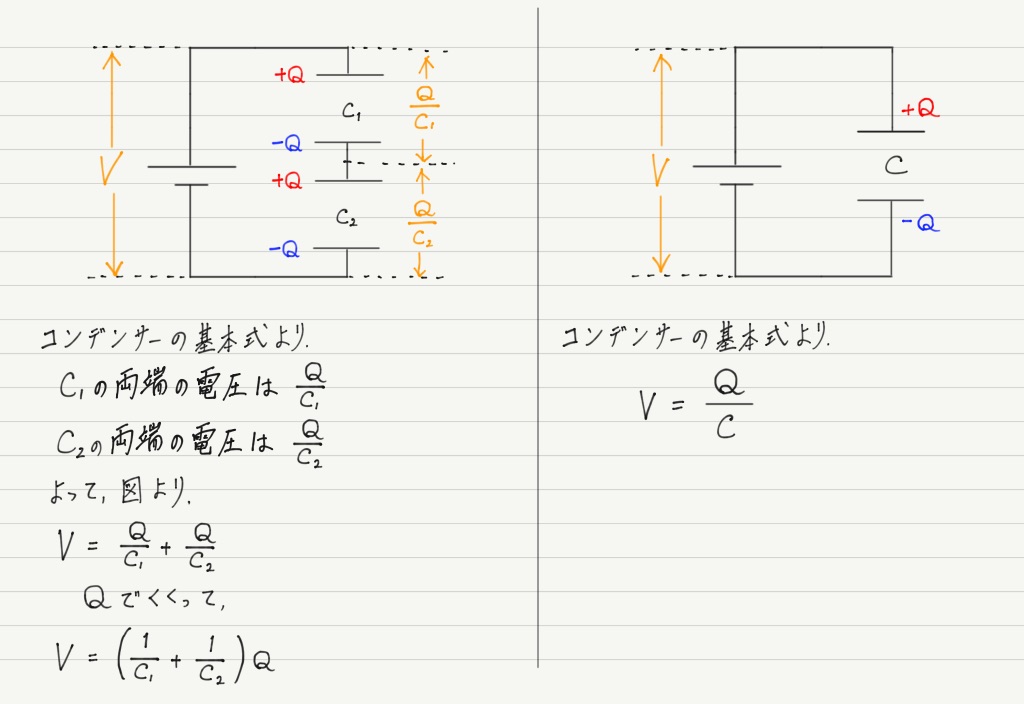 +Q
C₁
-Q
+Q
C₂
-Q
V
Q/C₁
Q/C₂
コンデンサーの基本式より.
C₁の両端の電圧は Q/C₁
C₂の両端の電圧は Q/C₂
よって, 図より.
V = Q/C₁ + Q/C₂
Qでくくって,
V = (1/C₁ + 1/C₂)Q
V
+Q
C
-Q
コンデンサーの基本式より.
V = Q/C